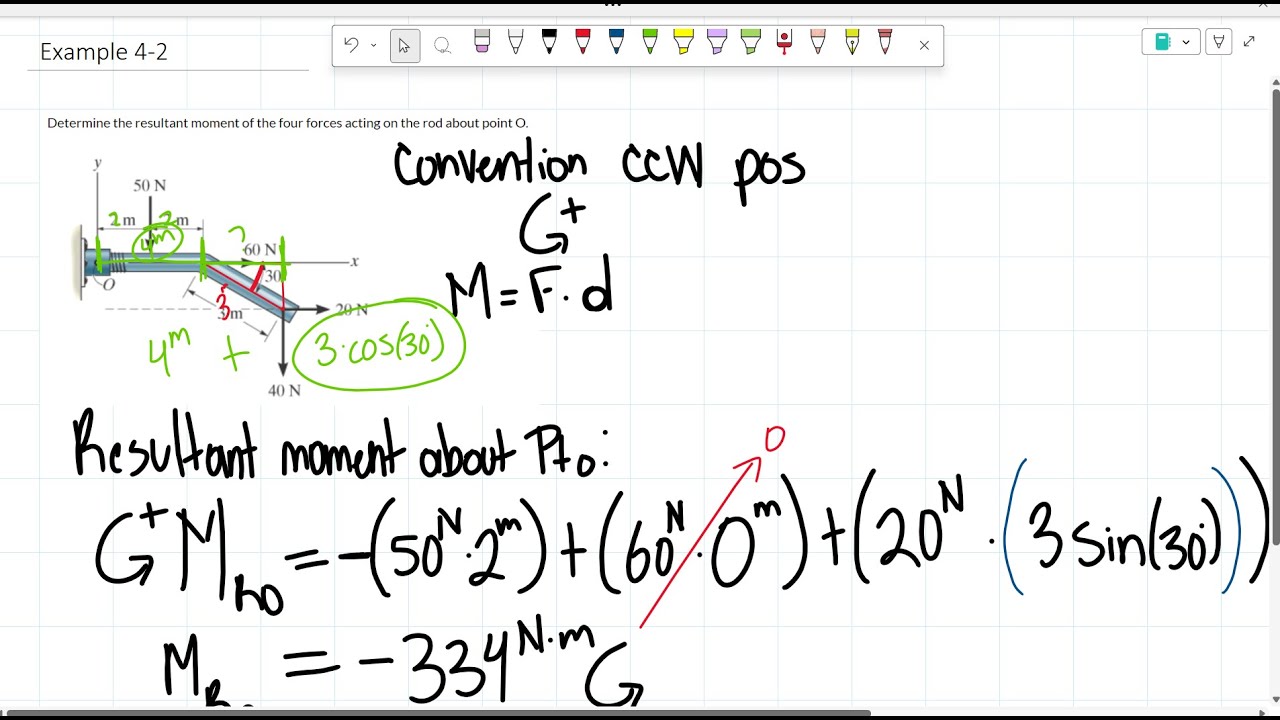 Example 4-2
Determine the resultant moment of the four forces acting on the rod about point O.
Convention CCW pos
+
M = F · d
y
50 N
2 m 2 m
4m
?
60 N
x
30
O
3 m
20 N
4m + 3·cos(30°)
40 N
Resultant moment about Pt O:
0
+ M RO = -(50 N · 2 m) + (60 N · 0 m) + (20 N · (3 sin(30°)))
M = -334 N·m